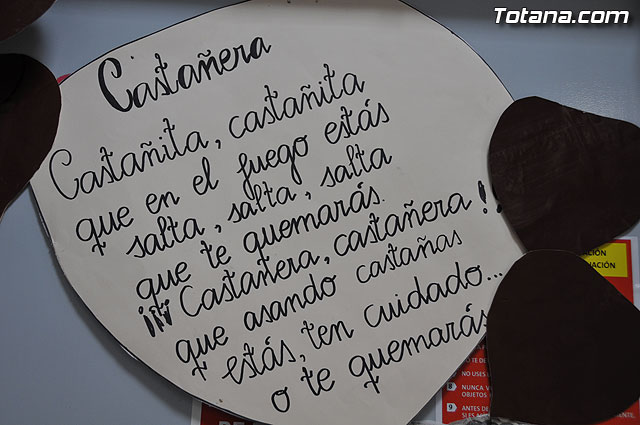 Totana.com
Castañera
Castañita, castañita
que en el fuego estás
salta, salta, salta
que te quemarás.
¡¡¡Castañera, castañera!!
que asando castañas
estás, ten cuidado...
o te quemarás
NACIÓN
NO USES
NUNCA
OBJETOS.
9 ANTES DE